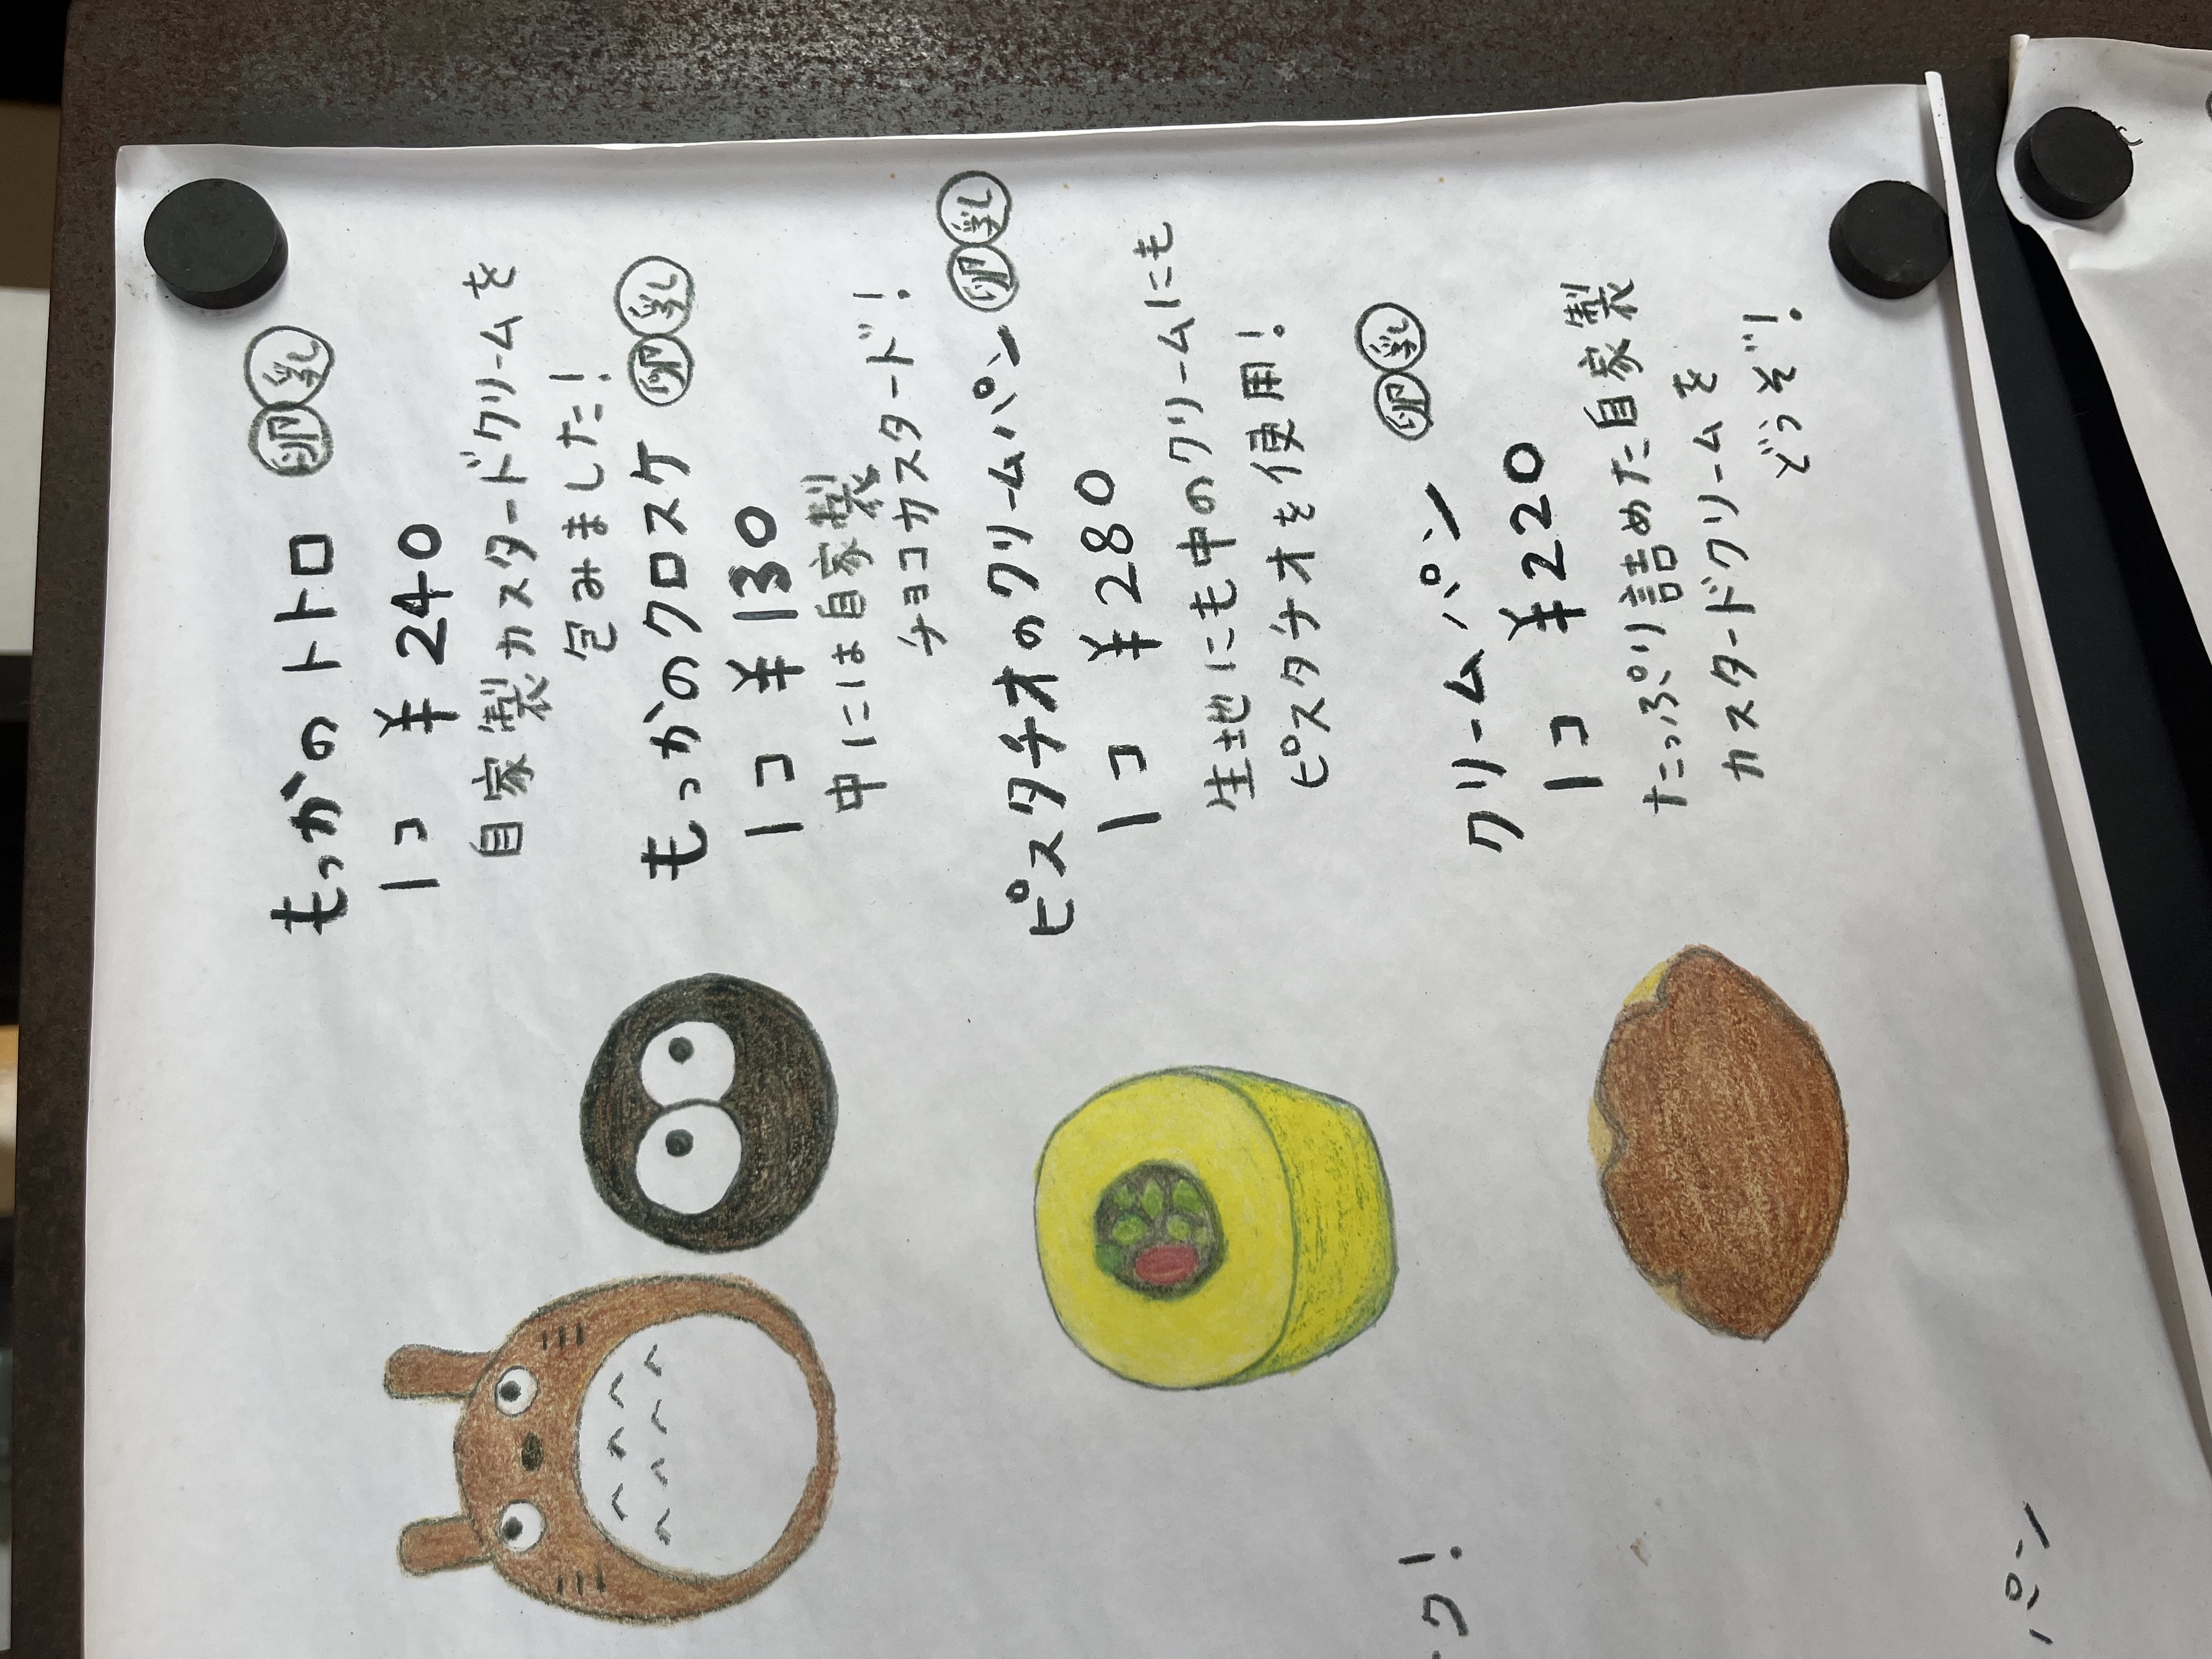 もっかのトトロ 卵 乳
1コ ¥240
自家製カスタードクリームを
包みました！
もっかのクロスケ 卵 乳
1コ ¥130
中には自家製
チョコカスタード！
ピスタチオのクリームパン 卵 乳
1コ ¥280
生地にも中のクリームにも
ピスタチオを使用！
クリームパン 卵 乳
1コ ¥220
たっぷり詰めた自家製
カスタードクリームを
どうぞ！
ク！
パン